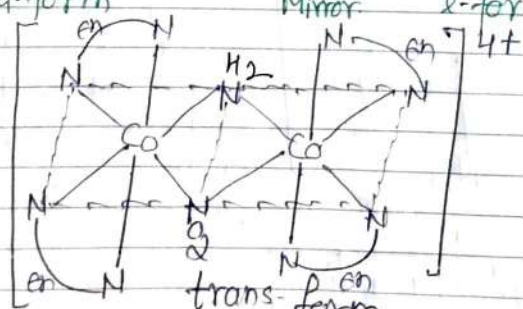 d-form Mirror l-for
en N N en 4+
N H2 N N
Co Co
N N N
O2
en N N en
trans- form